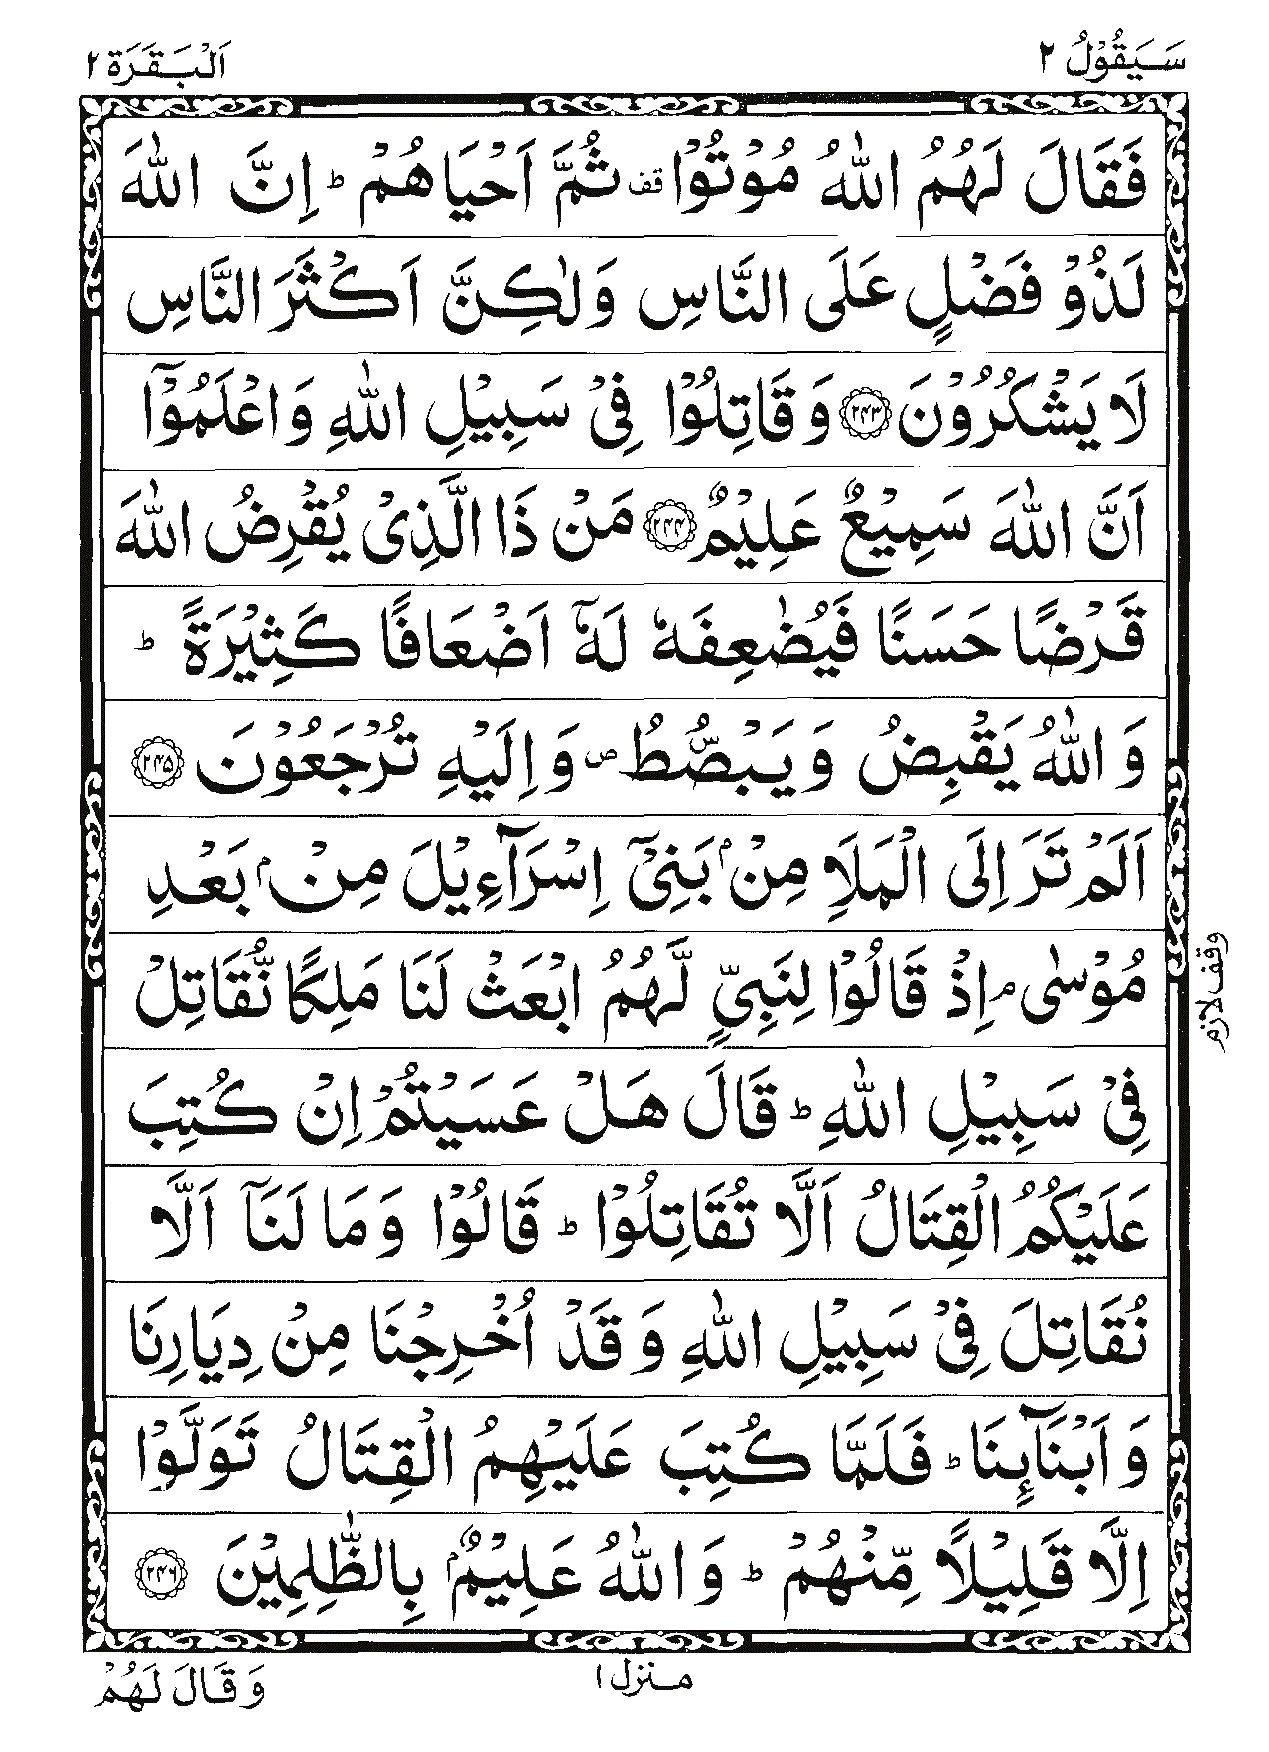 سَيَقُوْلُ ٢
اَلْبَقَرَة ٢
فَقَالَ لَهُمُ اللّٰهُ مُوْتُوْا قف ثُمَّ اَحْيَاهُمْ ؕ اِنَّ اللّٰهَ
لَذُوْ فَضْلٍ عَلَى النَّاسِ وَلٰكِنَّ اَكْثَرَ النَّاسِ
لَا يَشْكُرُوْنَ ﴿٢٤٣﴾ وَقَاتِلُوْا فِىْ سَبِيْلِ اللّٰهِ وَاعْلَمُوْٓا
اَنَّ اللّٰهَ سَمِيْعٌ عَلِيْمٌ ﴿٢٤٤﴾ مَنْ ذَا الَّذِىْ يُقْرِضُ اللّٰهَ
قَرْضًا حَسَنًا فَيُضٰعِفَهٗ لَهٗۤ اَضْعَافًا كَثِيْرَةً ؕ
وَاللّٰهُ يَقْبِضُ وَيَبْصُۜطُ ص وَاِلَيْهِ تُرْجَعُوْنَ ﴿٢٤٥﴾
اَلَمْ تَرَ اِلَى الْمَلَاِ مِنْۢ بَنِىْٓ اِسْرَآءِيْلَ مِنْۢ بَعْدِ
مُوْسٰى ۘ اِذْ قَالُوْا لِنَبِىٍّ لَّهُمُ ابْعَثْ لَنَا مَلِكًا نُّقَاتِلْ
فِىْ سَبِيْلِ اللّٰهِ ؕ قَالَ هَلْ عَسَيْتُمْ اِنْ كُتِبَ
عَلَيْكُمُ الْقِتَالُ اَلَّا تُقَاتِلُوْا ؕ قَالُوْا وَمَا لَنَآ اَلَّا
نُقَاتِلَ فِىْ سَبِيْلِ اللّٰهِ وَقَدْ اُخْرِجْنَا مِنْ دِيَارِنَا
وَاَبْنَآئِنَا ؕ فَلَمَّا كُتِبَ عَلَيْهِمُ الْقِتَالُ تَوَلَّوْا
اِلَّا قَلِيْلًا مِّنْهُمْ ؕ وَاللّٰهُ عَلِيْمٌۢ بِالظّٰلِمِيْنَ ﴿٢٤٦﴾
وقف لازم
منزل ١
وَقَالَ لَهُمْ